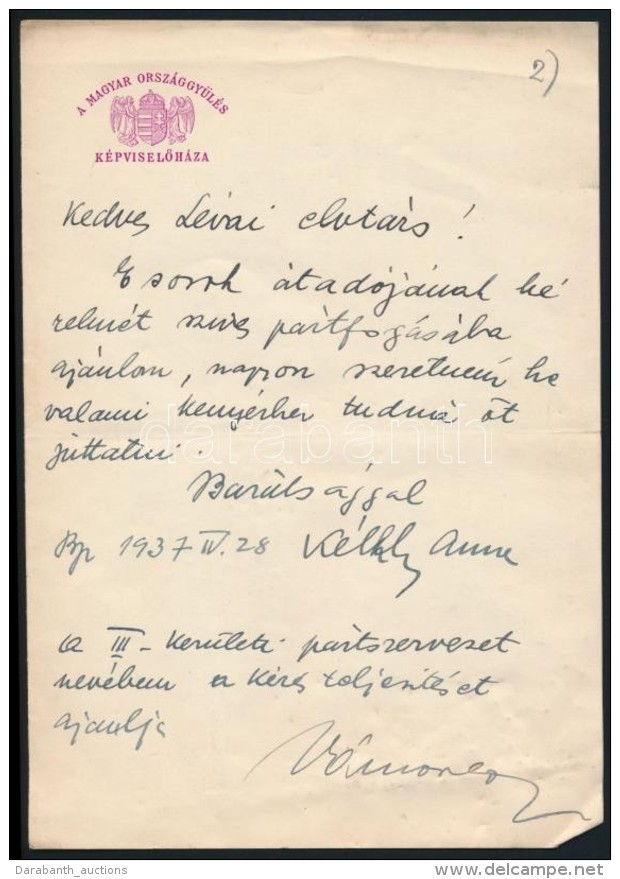 2)
A MAGYAR ORSZÁGGYÜLÉS
KÉPVISELŐHÁZA
Kedves Lévai elvtárs!
E sorok átadójának ké
relmét szives pártfogásába
ajánlom, nagyon szeretném ha
valami kenyérhez tudná őt
juttatni.
darabanth
Barátsággal
Bp 1937 IV. 28 Kéthly Anna
a III-kerületi pártszervezet
nevében a kérés teljesitését
ajánlja
Darabanth_auctions
www.delcampe.net